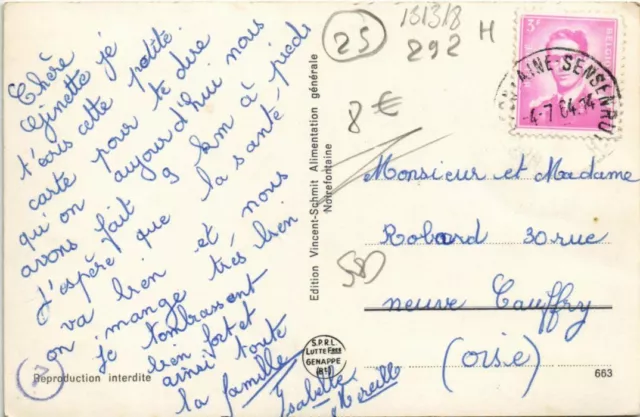 Chère
Ginette je
t'écris cette petite
carte pour te dire
qu'on aujourd'hui nous
avons fait 9 km à pieds
J'espère que la santé
va bien et, nous
on mange très bien
je t'embrassent
bien fort et
ainsi toute
la famille
Isabelle
Mireille
7
Reproduction interdite
Edition Vincent-Schmit Alimentation générale
Noirefontaine
25
13138
292
H
8€
3F
4-7 64.14
Monsieur et Madame
Robard 30 rue
neuve Cauffry
(oise)
S.P.R.L.
LUTTE Fres
GENAPPE
663